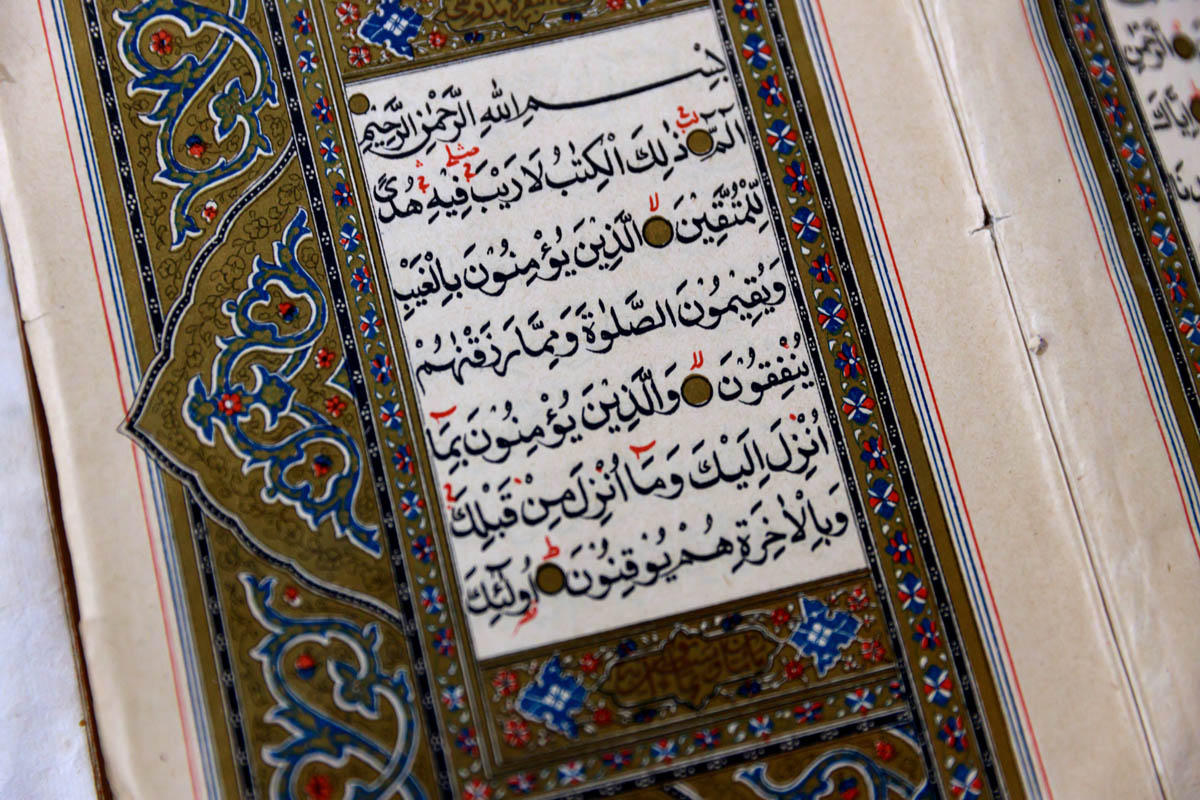 بِسْمِ اللهِ الرَّحْمٰنِ الرَّحِيْمِ
الٓمّٓ ذٰلِكَ الْكِتٰبُ لَا رَيْبَ فِيْهِ هُدًى
لِّلْمُتَّقِيْنَ الَّذِيْنَ يُؤْمِنُوْنَ بِالْغَيْبِ
وَيُقِيْمُوْنَ الصَّلٰوةَ وَمِمَّا رَزَقْنٰهُمْ
يُنْفِقُوْنَ وَالَّذِيْنَ يُؤْمِنُوْنَ بِمَآ
اُنْزِلَ اِلَيْكَ وَمَآ اُنْزِلَ مِنْ قَبْلِكَ
وَبِالْاٰخِرَةِ هُمْ يُوْقِنُوْنَ اُولٰٓئِكَ